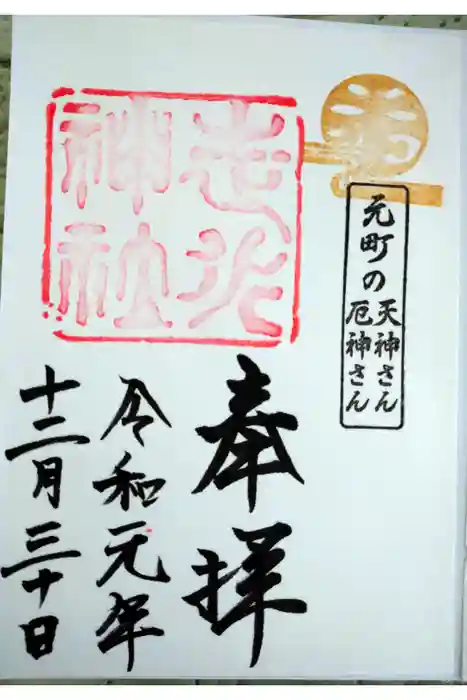 元町の
天神さん
厄神さん
走水
神社
奉拝
令和元年
十二月三十日